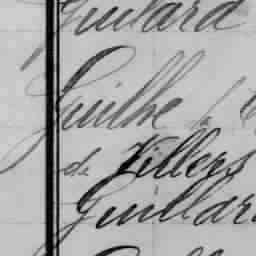 Guilard
Guilhe
de Villers
Guillar